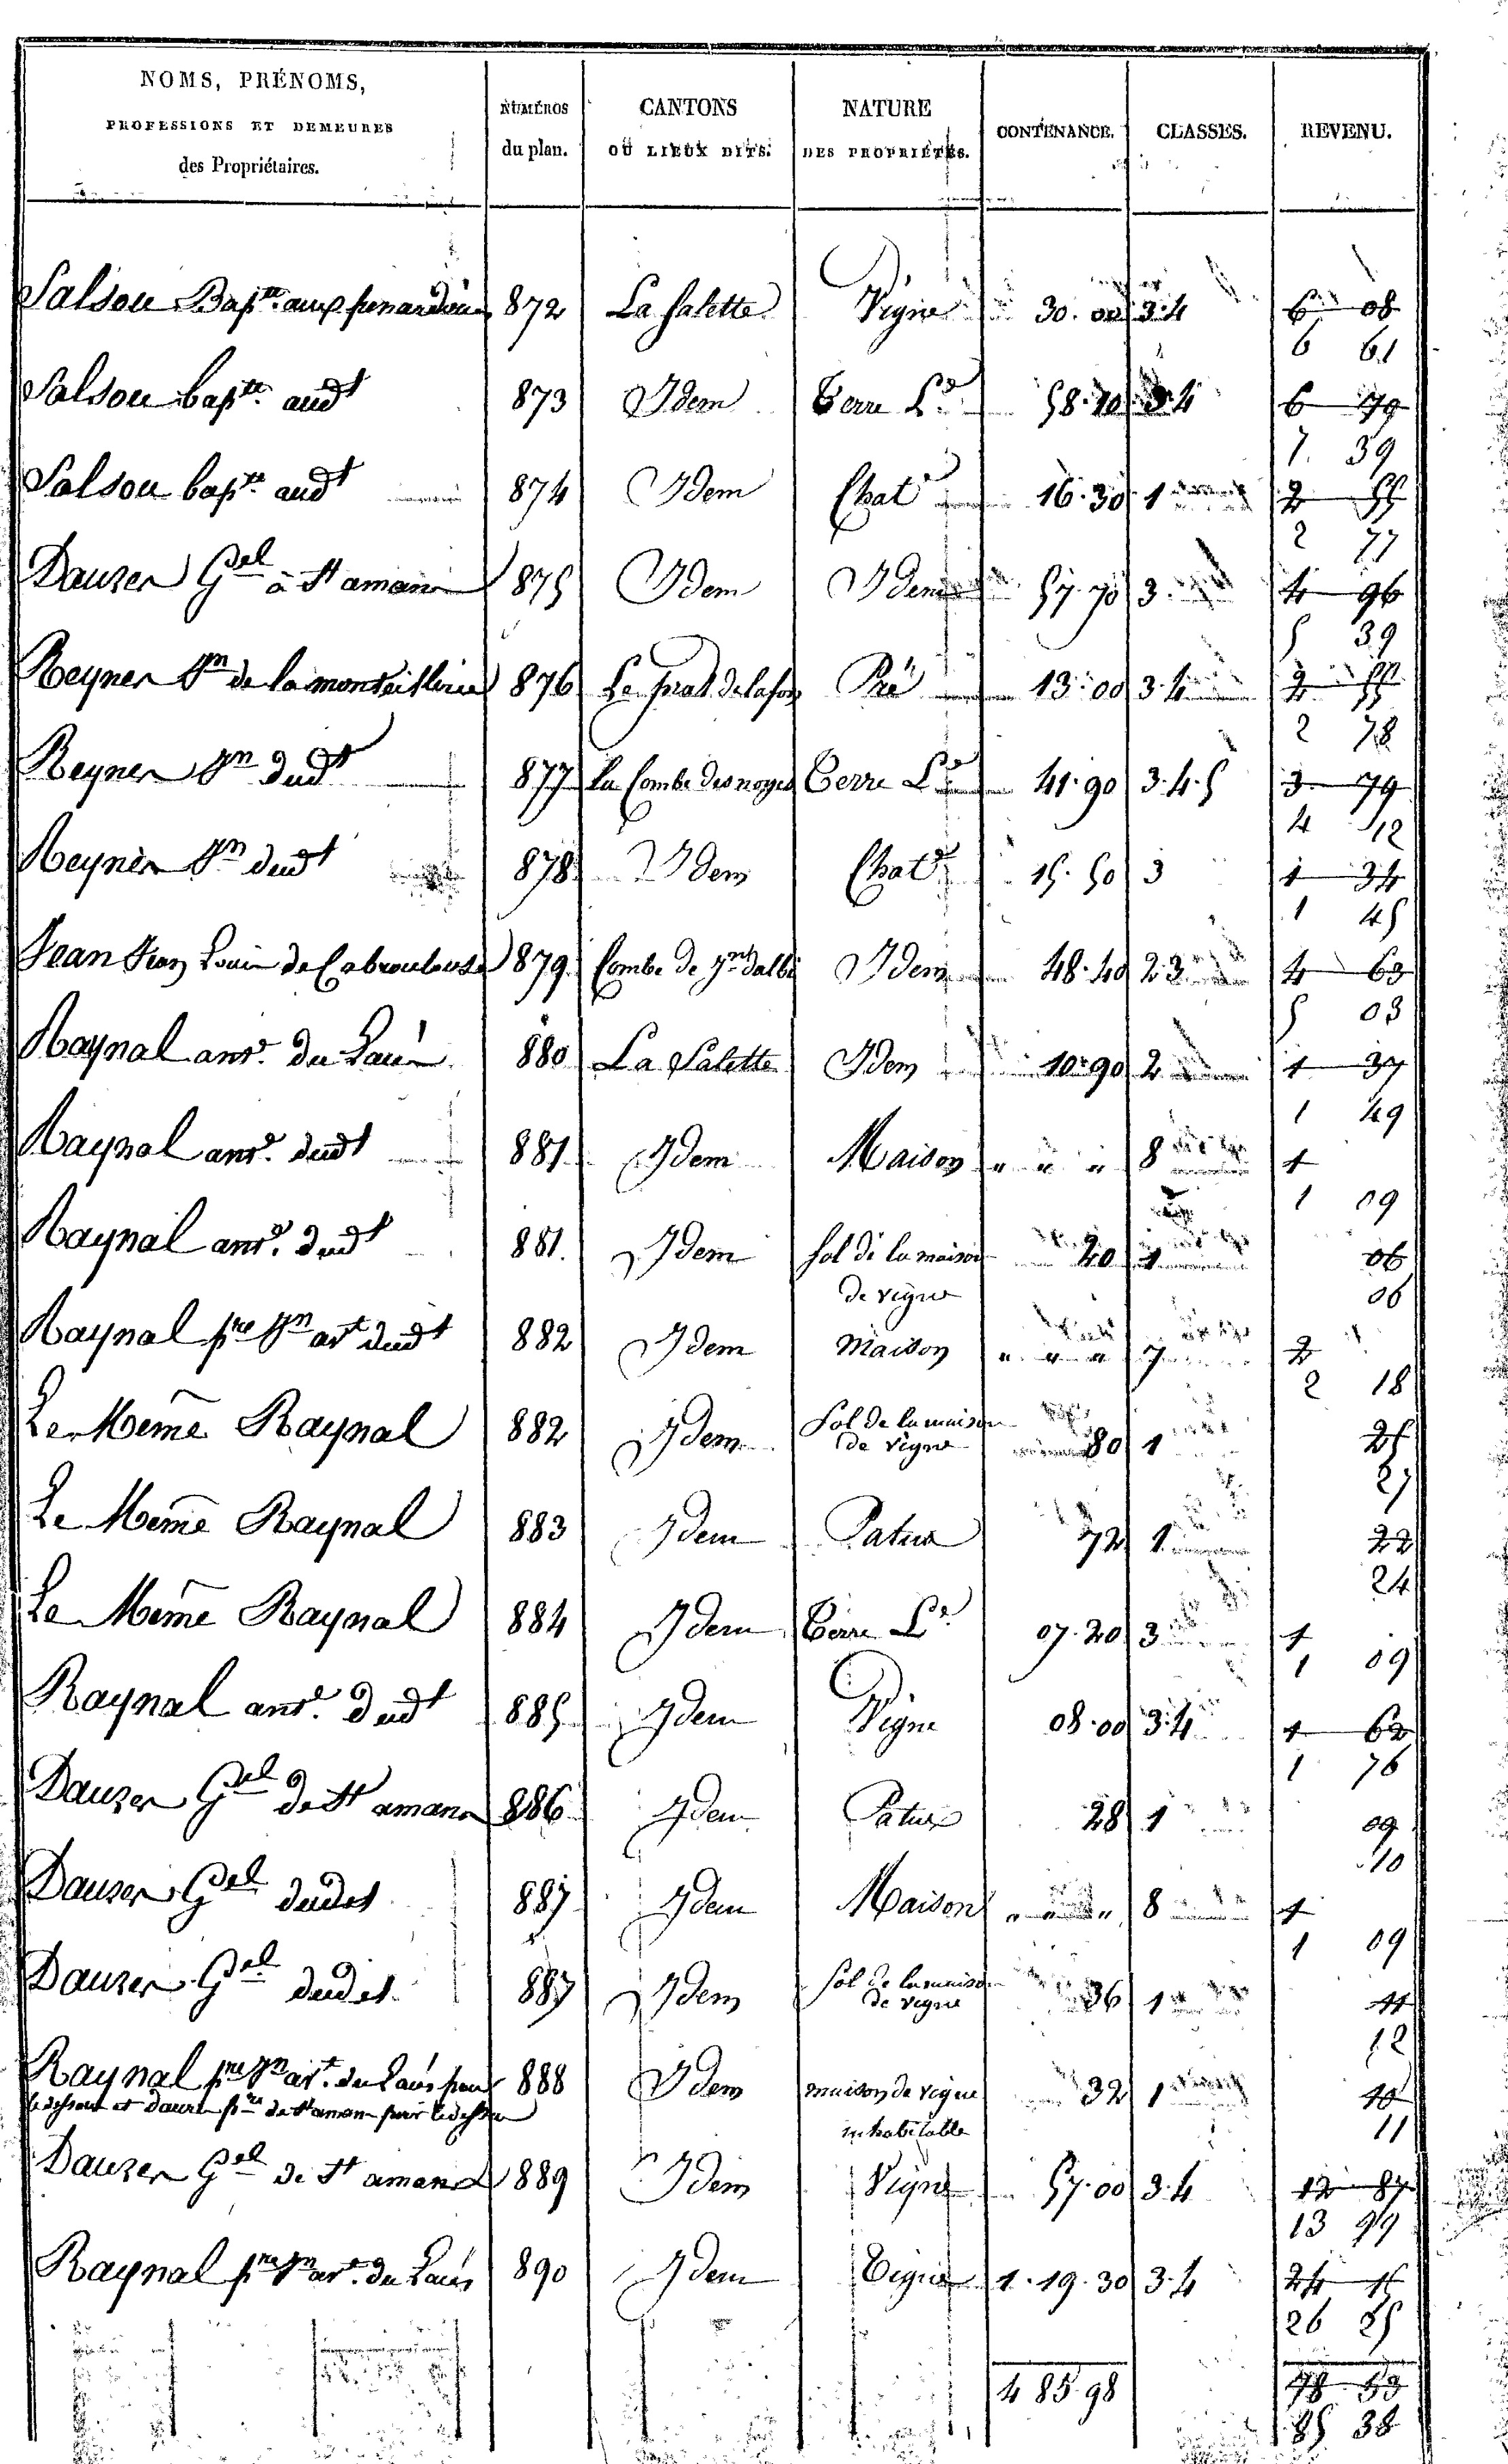 NOMS, PRÉNOMS,
PROFESSIONS ET DEMEURES
des Propriétaires.
NUMÉROS
du plan.
CANTONS
OÙ LIEUX DITS.
NATURE
DES PROPRIÉTÉS.
CONTENANCE.
CLASSES.
REVENU.
Salsou Bapte. aux 872 La Salette Vigne 30.00 3.4 6 08
6 61
Salsou bapte. audt 873 Idem Terre Le 58.20 3.4 6 79
7. 39
Salsou bapte. audt 874 Idem Chatr 16.30 1 2 55
2 77
Dauzer Gel à St amans 875 Idem Idem 57.70 3 4 96
5 39
Reyner Jn de la 876 Le prat de lafon Pré 13.00 3.4 2 55
2 78
Reyner Jn dudt 877 La Combe des noyes Terre Le 41.90 3.4.5 3 79
4 12
Reyner Jn dudt 878 Idem Chatr 15.50 3 1 34
1 45
Jean Jean Louis de 879 Combe de Idem 48.40 2.3 4 63
5 03
Raynal antne. du Laus 880 La Salette Idem 10.90 2 1 37
1 49
Raynal antne. dudt 881 Idem Maison " " " 8 1
1 09
Raynal antne. dudt 881. Idem Sol de la maison 20 1 06
de vigne 06
Raynal pre Jn art dudt 882 Idem Maison " " " 7 2
2 18
Le Meme Raynal 882 Idem Sol de la maison
de vigne 80 1 25
27
Le Meme Raynal 883 Idem Patus 72 1 22
24
Le Meme Raynal 884 Idem Terre Le 07.20 3 1
1 09
Raynal antne. dudt 885 Idem Vigne 08.00 3.4 1 62
1 76
Dauzer Gel de St amans 886 Idem Patus 28 1 09
10
Dauzer Gel dudit 887 Idem Maison " " " 8 1
1 09
Dauzer Gel dudit 887 Idem Sol de la maison
de vigne 36 1 11
12
Raynal pre Jn art. du Laus pour 888 Idem maison de vigne 32 1 10
le dessous et Dauzer de St amans pour le dessus inhabitable 11
Dauzer Gel de St amans 889 Idem Vigne 57.00 3.4 12 87
13 99
Raynal pre Jn art. du Laus 890 Idem Vigne 1.19.30 3.4 24 15
26 25
4 85 98 78 53
85 38